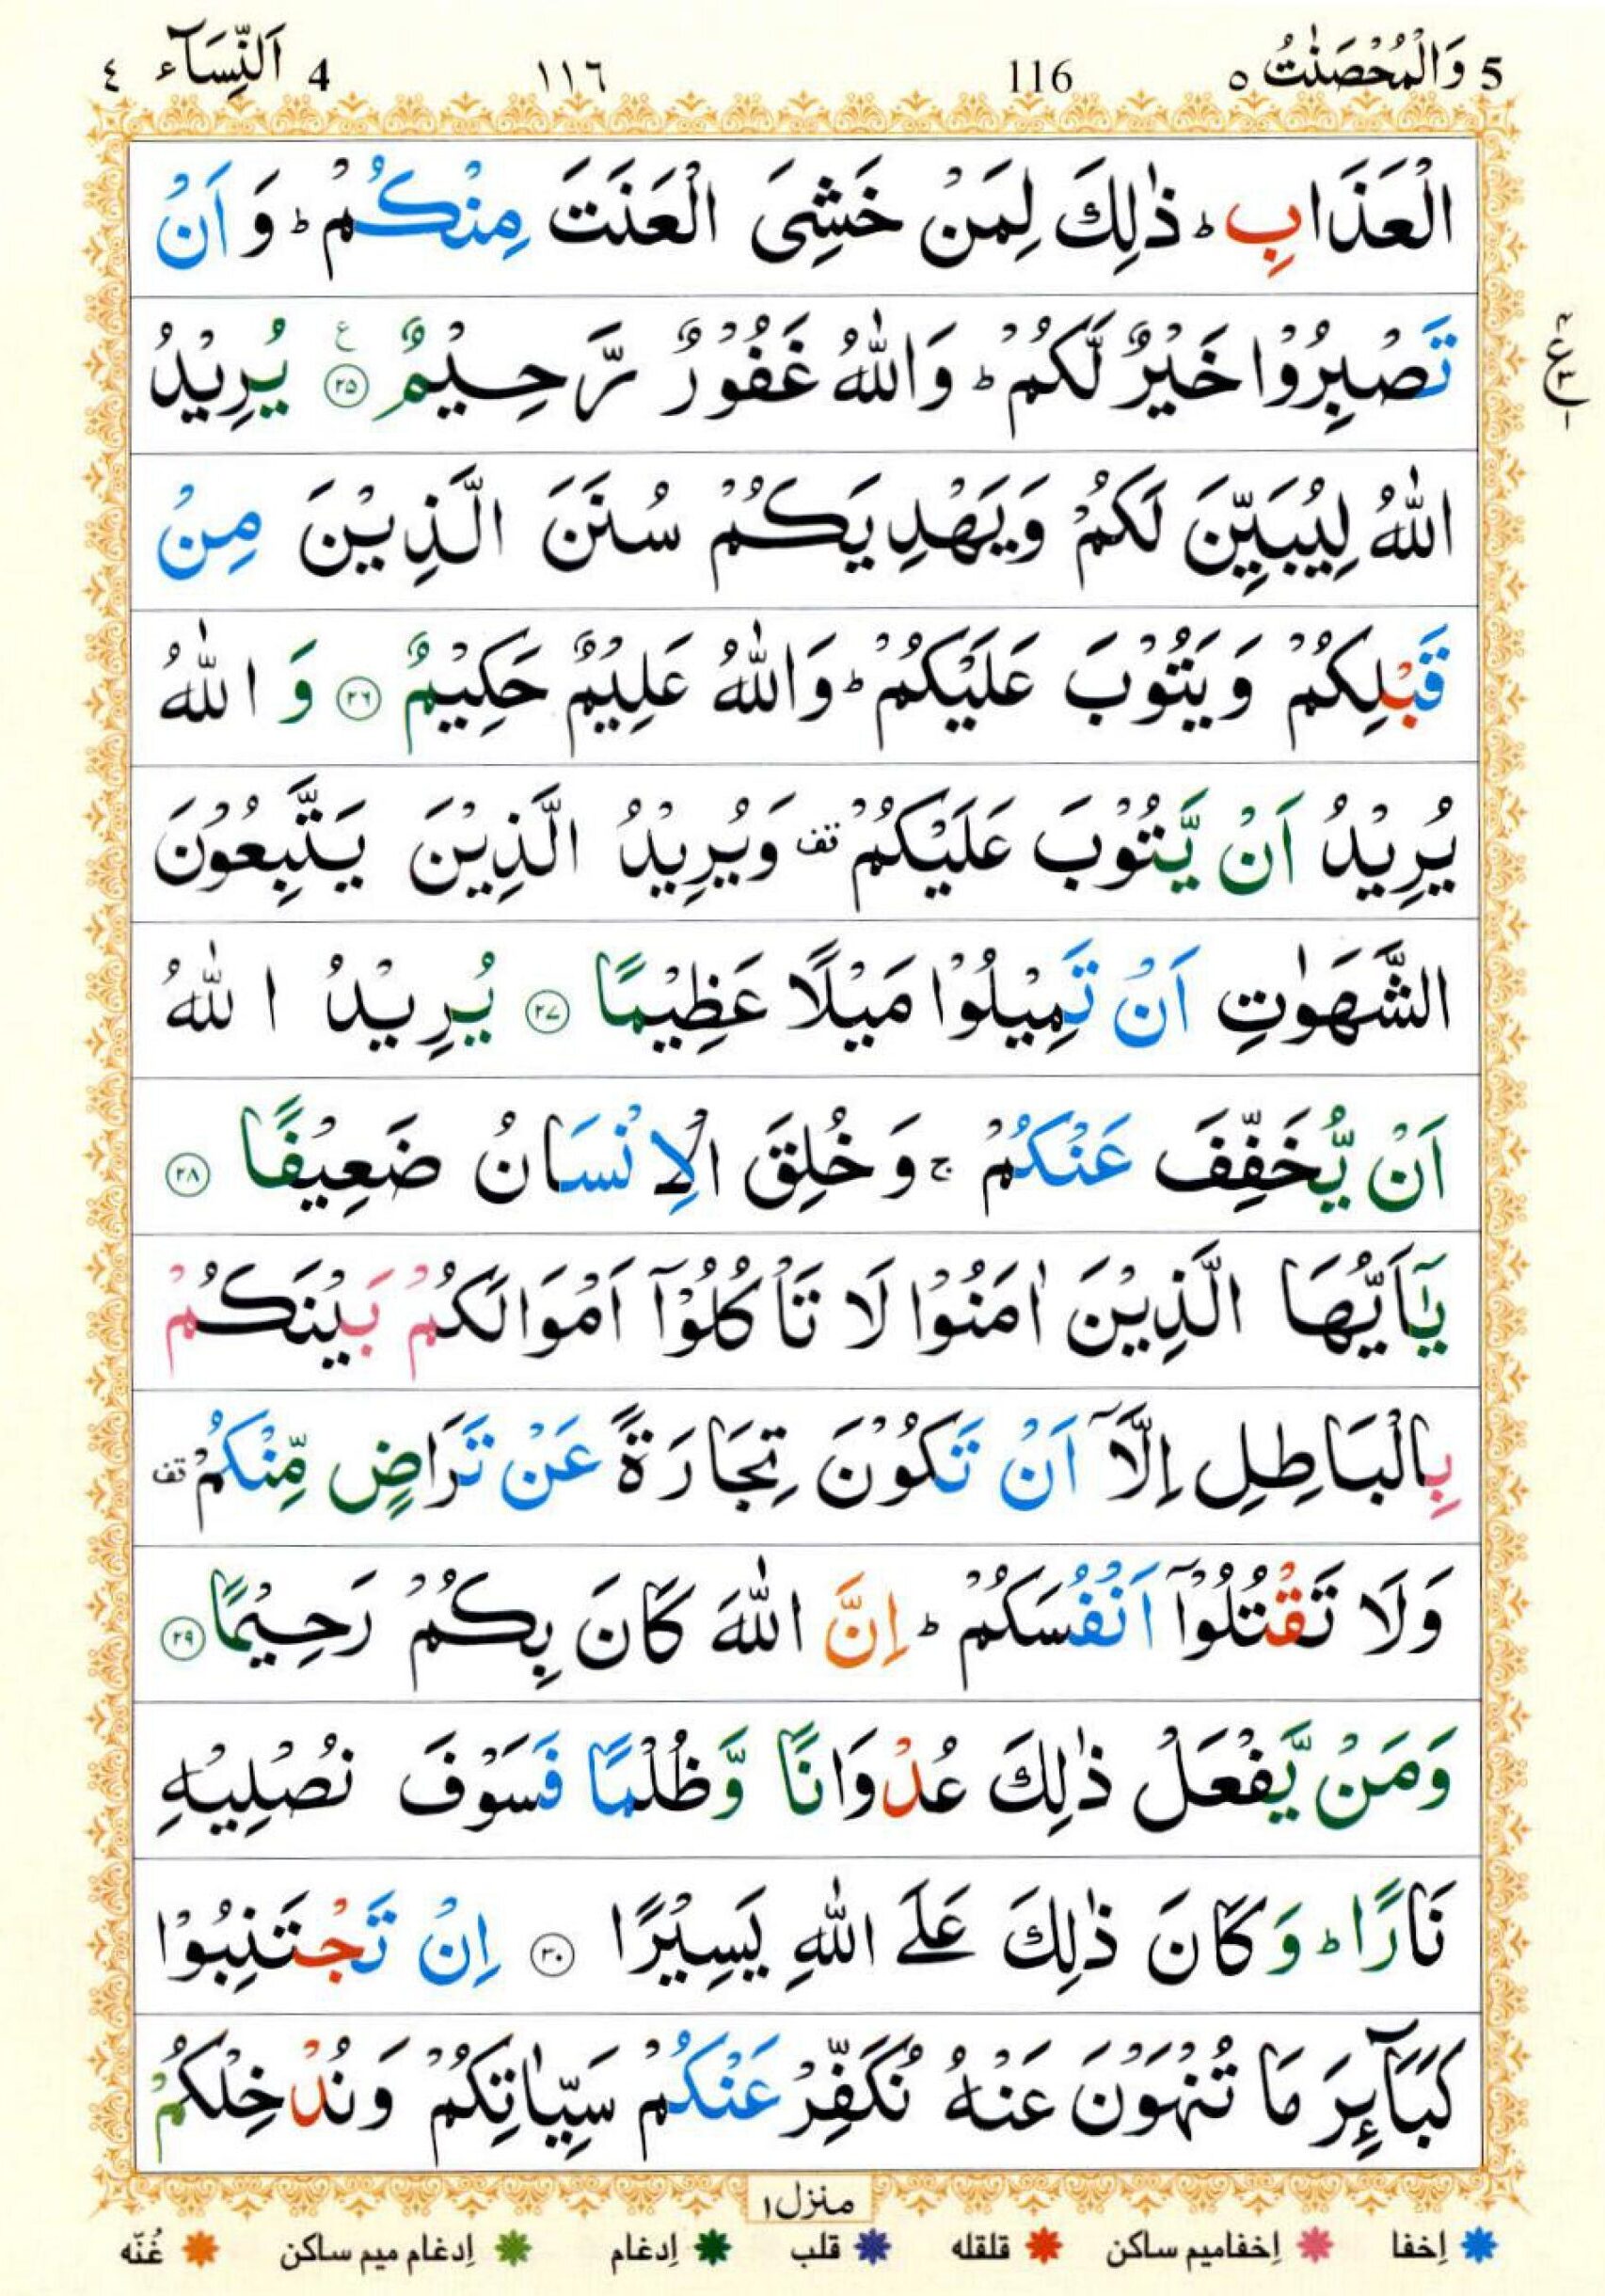 5 وَالْمُحْصَنٰتُ ٥ 116 ١١٦ 4 اَلنِّسَآء ٤
الْعَذَابِ ؕ ذٰلِكَ لِمَنْ خَشِیَ الْعَنَتَ مِنْكُمْ ؕ وَ اَنْ
تَصْبِرُوْا خَیْرٌ لَّكُمْ ؕ وَاللّٰهُ غَفُوْرٌ رَّحِیْمٌ ﴿۲۵﴾ ع یُرِیْدُ
اللّٰهُ لِیُبَیِّنَ لَكُمْ وَیَهْدِیَكُمْ سُنَنَ الَّذِیْنَ مِنْ
قَبْلِكُمْ وَ یَتُوْبَ عَلَیْكُمْ ؕ وَاللّٰهُ عَلِیْمٌ حَكِیْمٌ ﴿۲۶﴾ وَ اللّٰهُ
یُرِیْدُ اَنْ یَّتُوْبَ عَلَیْكُمْ قف وَیُرِیْدُ الَّذِیْنَ یَتَّبِعُوْنَ
الشَّهَوٰتِ اَنْ تَمِیْلُوْا مَیْلًا عَظِیْمًا ﴿۲۷﴾ یُرِیْدُ اللّٰهُ
اَنْ یُّخَفِّفَ عَنْكُمْ ۚ وَ خُلِقَ الْاِنْسَانُ ضَعِیْفًا ﴿۲۸﴾
یٰۤاَیُّهَا الَّذِیْنَ اٰمَنُوْا لَا تَاْكُلُوْۤا اَمْوَالَكُمْ بَیْنَكُمْ
بِالْبَاطِلِ اِلَّاۤ اَنْ تَكُوْنَ تِجَارَةً عَنْ تَرَاضٍ مِّنْكُمْ قف
وَلَا تَقْتُلُوْۤا اَنْفُسَكُمْ ؕ اِنَّ اللّٰهَ كَانَ بِكُمْ رَحِیْمًا ﴿۲۹﴾
وَمَنْ یَّفْعَلْ ذٰلِكَ عُدْوَانًا وَّظُلْمًا فَسَوْفَ نُصْلِیْهِ
نَارًا ؕ وَ كَانَ ذٰلِكَ عَلَی اللّٰهِ یَسِیْرًا ﴿۳۰﴾ اِنْ تَجْتَنِبُوْا
كَبَآىِٕرَ مَا تُنْهَوْنَ عَنْهُ نُكَفِّرْ عَنْكُمْ سَیِّاٰتِكُمْ وَنُدْخِلْكُمْ
منزل۱
اِخفا اِخفامیم ساكن قلقله قلب اِدغام اِدغام میم ساكن غُنّه